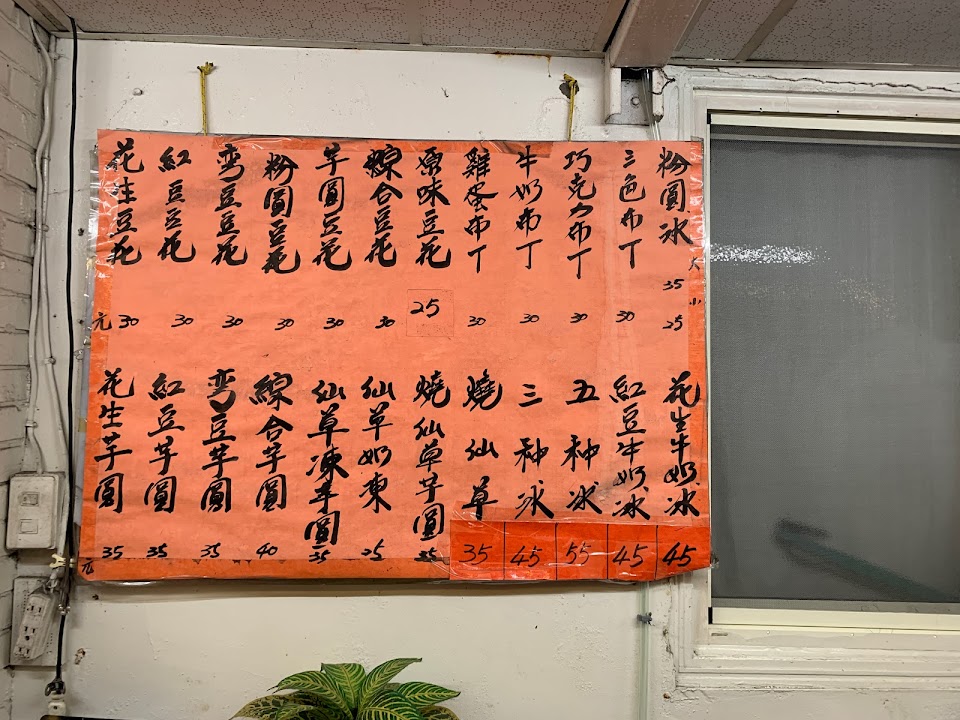 粉圓冰 大35 小25
三色布丁 30
巧克力布丁 30
牛奶布丁 30
雞蛋布丁 30
原味豆花 25
綜合豆花 30
芋圓豆花 30
粉圓豆花 30
弯豆豆花 30
紅豆豆花 30
花生豆花 30元
花生牛奶冰 45
紅豆牛奶冰 45
五种冰 55
三种冰 45
燒仙草 35
燒仙草芋圓
仙草奶凍 25
仙草凍芋圓 35
綜合芋圓 40
弯豆芋圓 35
紅豆芋圓 35
花生芋圓 35元